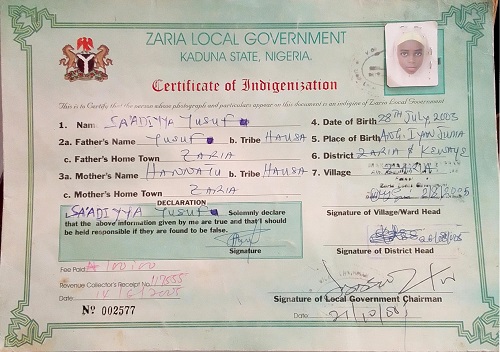 ZARIA LOCAL GOVERNMENT
KADUNA STATE, NIGERIA.
Certificate of Indigenization
This is to Certify that the person whose photograph and particulars appear on this document is an indigene of Zaria Local Government
1. Name SA'ADIYYA YUSUF 4. Date of Birth 28TH July 2003
2a. Father's Name YUSUF b. Tribe HAUSA 5. Place of Birth ANG. IYAN JUMA
c. Father's Home Town ZARIA 6. District ZARIA & KEWAYE
3a. Mother's Name HANNATU b. Tribe HAUSA 7. Village
c. Mother's Home Town ZARIA
DECLARATION
SA'ADIYYA YUSUF Solemnly declare
that the above information given by me are true and that I should
be held responsible if they are found to be false.
Signature
Signature of Village/Ward Head
Signature of District Head
Fee Paid
Revenue Collector's Receipt No.
Date
Nº 002577
Signature of Local Government Chairman
Date: